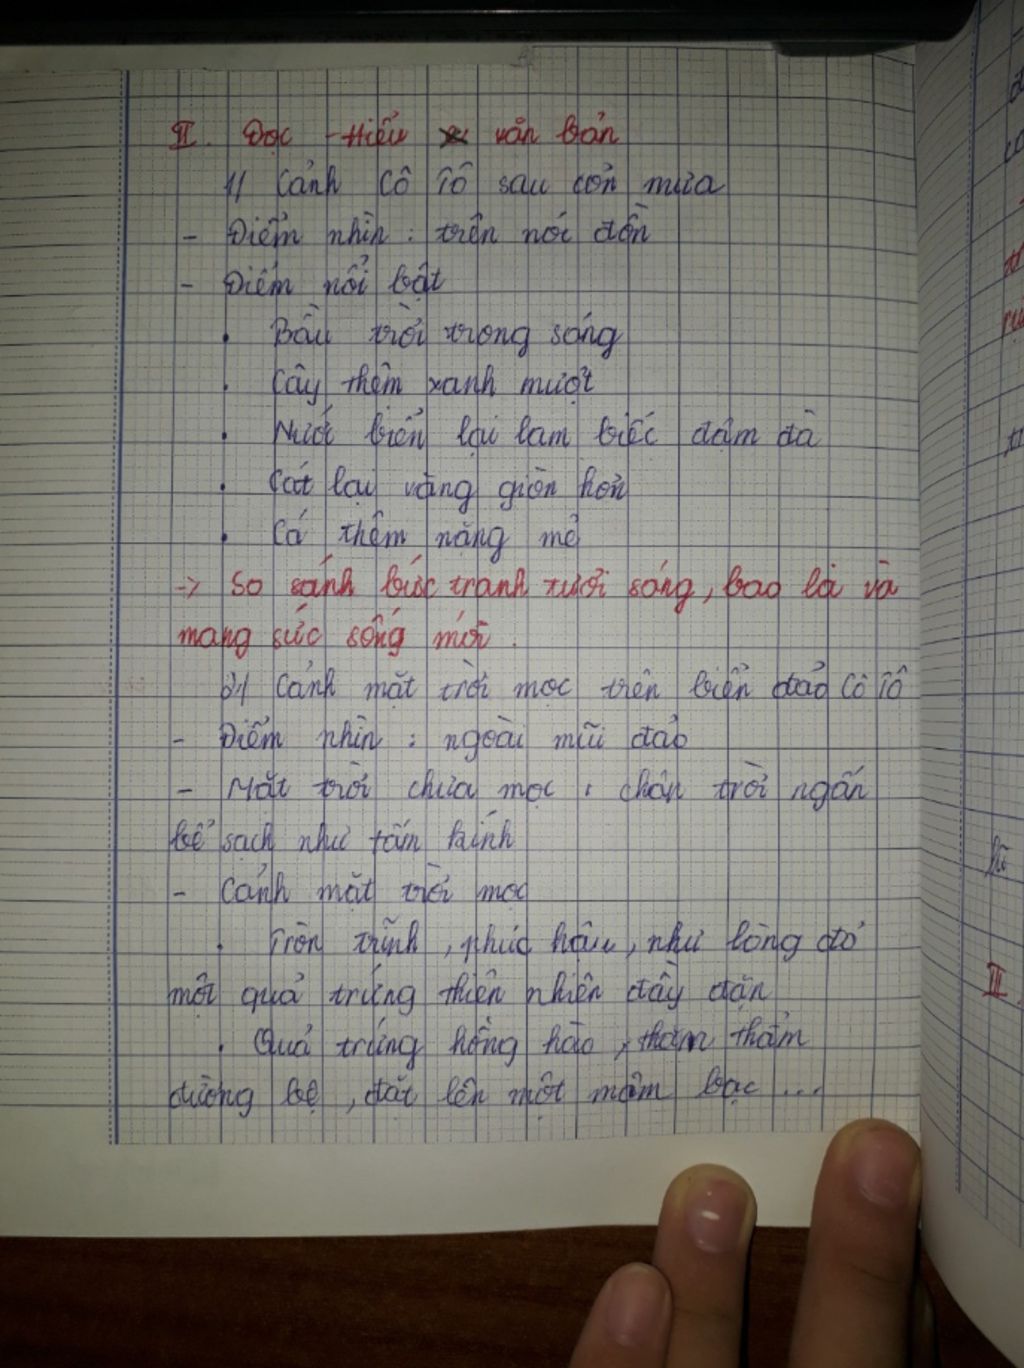 II. Đọc - Hiểu văn bản
1/ Cảnh Cô Tô sau cơn mưa
- Điểm nhìn : trên nóc đồn
- Điểm nổi bật
. Bầu trời trong sáng
. Cây thêm xanh mượt
. Nước biển lại lam biếc đậm đà
. Cát lại vàng giòn hơn
. Cá thêm nặng mẻ
-> So sánh bức tranh tươi sáng, bao la và
mang sức sống mới.
2/ Cảnh mặt trời mọc trên biển đảo Cô Tô
- Điểm nhìn : ngoài mũi đảo
- Mặt trời chưa mọc : chân trời ngấn
bể sạch như tấm kính
- Cảnh mặt trời mọc
. Tròn trĩnh, phúc hậu, như lòng đỏ
một quả trứng thiên nhiên đầy đặn
. Quả trứng hồng hào, thăm thẳm
đường bệ, đặt lên một mâm bạc ...
II.